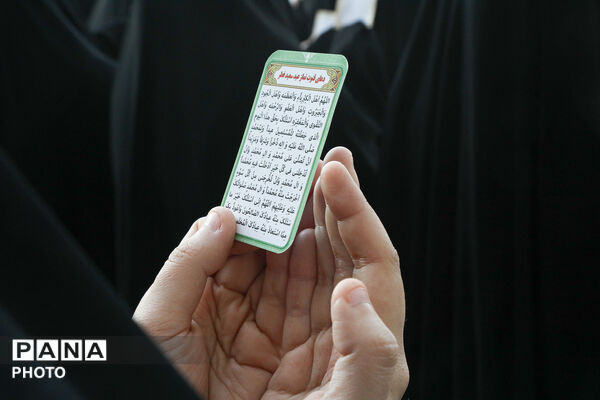 دعای قنوت نماز عید سعید فطر
اللهم اهل الکبریاء والعظمه واهل الجود
والجبروت واهل العفو والرحمه واهل
التقوی والمغفره اسئلک بحق هذا الیوم
الذی جعلته للمسلمین عیداً ولمحمد
صلی الله علیه و اله ذخراً وشرفاً ومزیداً
ان تصلی علی محمد و ال محمد وان
تدخلنی فی کل خیر ادخلت فیه محمداً
و ال محمد وان تخرجنی من کل سوء
اخرجت منه محمداً و ال محمد صلواتک
علیه وعلیهم اللهم انی اسئلک خیر ما
سئلک منه عبادک الصالحون واعوذ بک
مما استعاذ منه عبادک
PANA
PHOTO